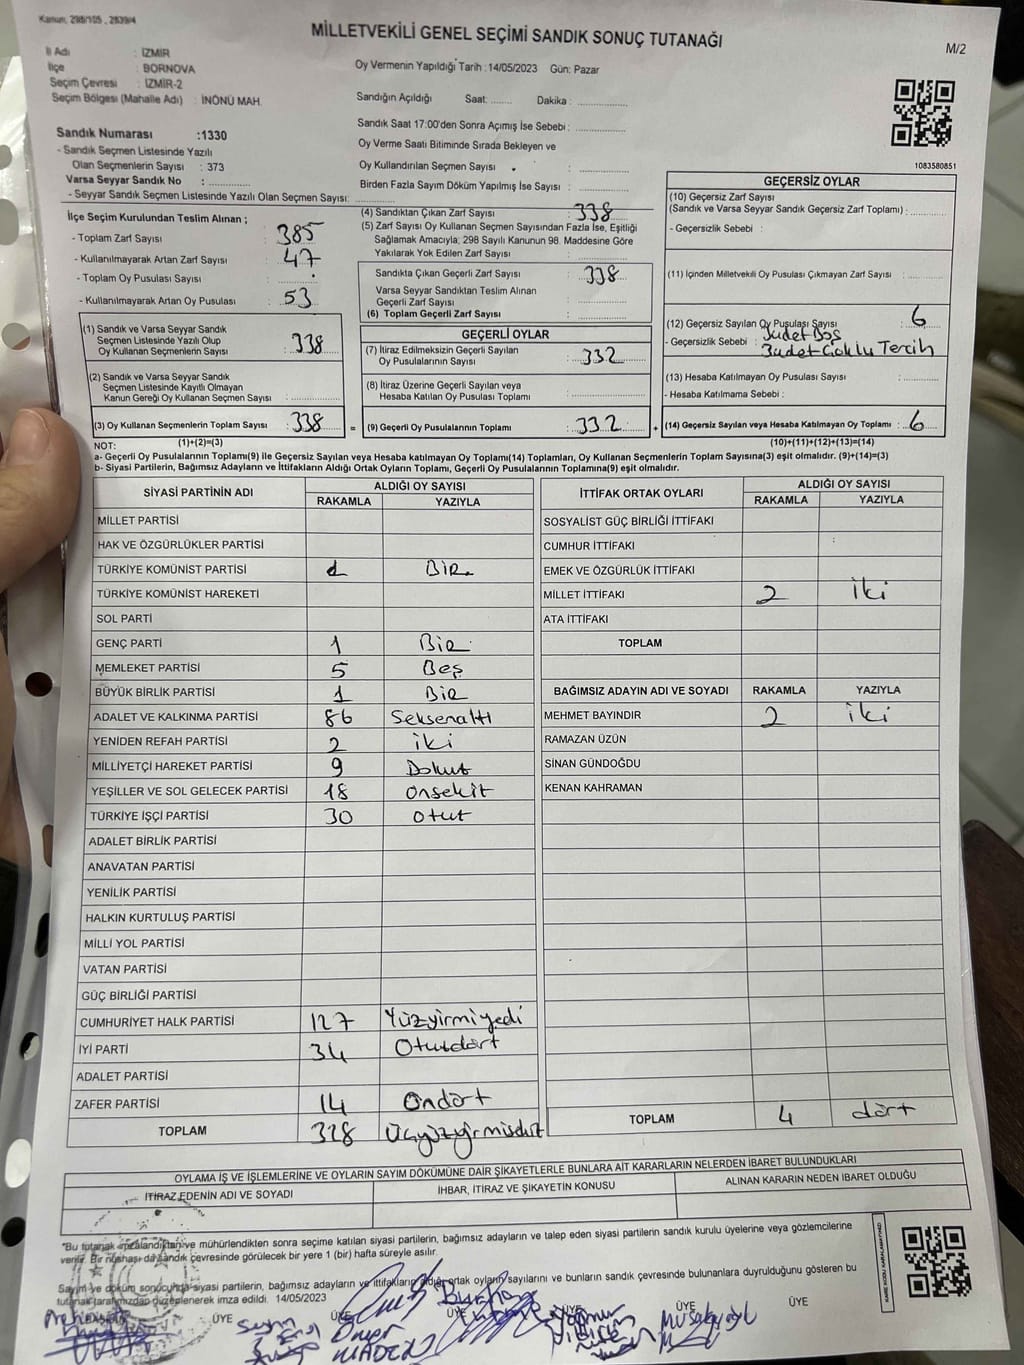 Kanun, 298/105 , 2839/4
MİLLETVEKİLİ GENEL SEÇİMİ SANDIK SONUÇ TUTANAĞI
M/2
İl Adı : İZMİR
İlçe : BORNOVA
Seçim Çevresi : İZMİR-2
Seçim Bölgesi (Mahalle Adı) : İNÖNÜ MAH.
Oy Vermenin Yapıldığı Tarih :14/05/2023 Gün: Pazar
Sandığın Açıldığı Saat: ........ Dakika : ..................
Sandık Saat 17:00'den Sonra Açımış İse Sebebi : ..................
Oy Verme Saati Bitiminde Sırada Bekleyen ve
Oy Kullandırılan Seçmen Sayısı : ..................
Birden Fazla Sayım Döküm Yapılmış İse Sayısı : ..................
1083580851
Sandık Numarası :1330
- Sandık Seçmen Listesinde Yazılı
Olan Seçmenlerin Sayısı : 373
Varsa Seyyar Sandık No : ...............
- Seyyar Sandık Seçmen Listesinde Yazılı Olan Seçmen Sayısı: ..................
İlçe Seçim Kurulundan Teslim Alınan ;
- Toplam Zarf Sayısı : 385
- Kullanılmayarak Artan Zarf Sayısı : 47
- Toplam Oy Pusulası Sayısı : ..........
- Kullanılmayarak Artan Oy Pusulası : 53
(1) Sandık ve Varsa Seyyar Sandık
Seçmen Listesinde Yazılı Olup
Oy Kullanan Seçmenlerin Sayısı : 338
(2) Sandık ve Varsa Seyyar Sandık
Seçmen Listesinde Kayıtlı Olmayan
Kanun Gereği Oy Kullanan Seçmen Sayısı : ..................
(3) Oy Kullanan Seçmenlerin Toplam Sayısı : 338 =
(4) Sandıktan Çıkan Zarf Sayısı : 338
(5) Zarf Sayısı Oy Kullanan Seçmen Sayısından Fazla İse, Eşitliği
Sağlamak Amacıyla; 298 Sayılı Kanunun 98. Maddesine Göre
Yakılarak Yok Edilen Zarf Sayısı : ..................
Sandıkta Çıkan Geçerli Zarf Sayısı : 338
Varsa Seyyar Sandıktan Teslim Alınan
Geçerli Zarf Sayısı : ..................
(6) Toplam Geçerli Zarf Sayısı : ..................
GEÇERLİ OYLAR
(7) İtiraz Edilmeksizin Geçerli Sayılan
Oy Pusulalarının Sayısı : 332
(8) İtiraz Üzerine Geçerli Sayılan veya
Hesaba Katılan Oy Pusulası Toplamı : ..................
(9) Geçerli Oy Pusulalarının Toplamı : 332 +
GEÇERSİZ OYLAR
(10) Geçersiz Zarf Sayısı
(Sandık ve Varsa Seyyar Sandık Geçersiz Zarf Toplamı) : ..........
- Geçersizlik Sebebi :
(11) İçinden Milletvekili Oy Pusulası Çıkmayan Zarf Sayısı : ..........
(12) Geçersiz Sayılan Oy Pusulası Sayısı : 6
- Geçersizlik Sebebi : 3 adet Boş
3 adet Çoklu Tercih
(13) Hesaba Katılmayan Oy Pusulası Sayısı : ..........
- Hesaba Katılmama Sebebi :
(14) Geçersiz Sayılan veya Hesaba Katılmayan Oy Toplamı : 6
NOT: (1)+(2)=(3)
(10)+(11)+(12)+(13)=(14)
a- Geçerli Oy Pusulalarının Toplamı(9) ile Geçersiz Sayılan veya Hesaba katılmayan Oy Toplamı(14) Toplamları, Oy Kullanan Seçmenlerin Toplam Sayısına(3) eşit olmalıdır. (9)+(14)=(3)
b- Siyasi Partilerin, Bağımsız Adayların ve İttifakların Aldığı Ortak Oyların Toplamı, Geçerli Oy Pusulalarının Toplamına(9) eşit olmalıdır.
SİYASİ PARTİNİN ADI ALDIĞI OY SAYISI
RAKAMLA YAZIYLA
MİLLET PARTİSİ
HAK VE ÖZGÜRLÜKLER PARTİSİ
TÜRKİYE KOMÜNİST PARTİSİ 1 Bir
TÜRKİYE KOMÜNİST HAREKETİ
SOL PARTİ
GENÇ PARTİ 1 Bir
MEMLEKET PARTİSİ 5 Beş
BÜYÜK BİRLİK PARTİSİ 1 Bir
ADALET VE KALKINMA PARTİSİ 86 Seksenaltı
YENİDEN REFAH PARTİSİ 2 iki
MİLLİYETÇİ HAREKET PARTİSİ 9 Dokuz
YEŞİLLER VE SOL GELECEK PARTİSİ 18 onsekiz
TÜRKİYE İŞÇİ PARTİSİ 30 otuz
ADALET BİRLİK PARTİSİ
ANAVATAN PARTİSİ
YENİLİK PARTİSİ
HALKIN KURTULUŞ PARTİSİ
MİLLİ YOL PARTİSİ
VATAN PARTİSİ
GÜÇ BİRLİĞİ PARTİSİ
CUMHURİYET HALK PARTİSİ 127 Yüzyirmiyedi
İYİ PARTİ 34 Otuzdört
ADALET PARTİSİ
ZAFER PARTİSİ 14 Ondört
TOPLAM 328 Üçyüzyirmisekiz
İTTİFAK ORTAK OYLARI ALDIĞI OY SAYISI
RAKAMLA YAZIYLA
SOSYALİST GÜÇ BİRLİĞİ İTTİFAKI
CUMHUR İTTİFAKI
EMEK VE ÖZGÜRLÜK İTTİFAKI
MİLLET İTTİFAKI 2 İki
ATA İTTİFAKI
TOPLAM
BAĞIMSIZ ADAYIN ADI VE SOYADI RAKAMLA YAZIYLA
MEHMET BAYINDIR 2 iki
RAMAZAN ÜZÜN
SİNAN GÜNDOĞDU
KENAN KAHRAMAN
TOPLAM 4 dört
OYLAMA İŞ VE İŞLEMLERİNE VE OYLARIN SAYIM DÖKÜMÜNE DAİR ŞİKAYETLERLE BUNLARA AİT KARARLARIN NELERDEN İBARET BULUNDUKLARI
İTİRAZ EDENİN ADI VE SOYADI İHBAR, İTİRAZ VE ŞİKAYETİN KONUSU ALINAN KARARIN NEDEN İBARET OLDUĞU
*Bu tutanak imzalandıktan ve mühürlendikten sonra seçime katılan siyasi partilerin, bağımsız adayların ve talep eden siyasi partilerin sandık kurulu üyelerine veya gözlemcilerine
verilir. Bir nüshası da sandık çevresinde görülecek bir yere 1 (bir) hafta süreyle asılır.
Sayım ve döküm sonucunda siyasi partilerin, bağımsız adayların ve ittifakların aldığı ortak oyların sayılarını ve bunların sandık çevresinde bulunanlara duyrulduğunu gösteren bu
tutanak tarafımızdan düzenlenerek imza edildi. 14/05/2023
ÜYE ÜYE ÜYE ÜYE ÜYE
Ömer
MADEN